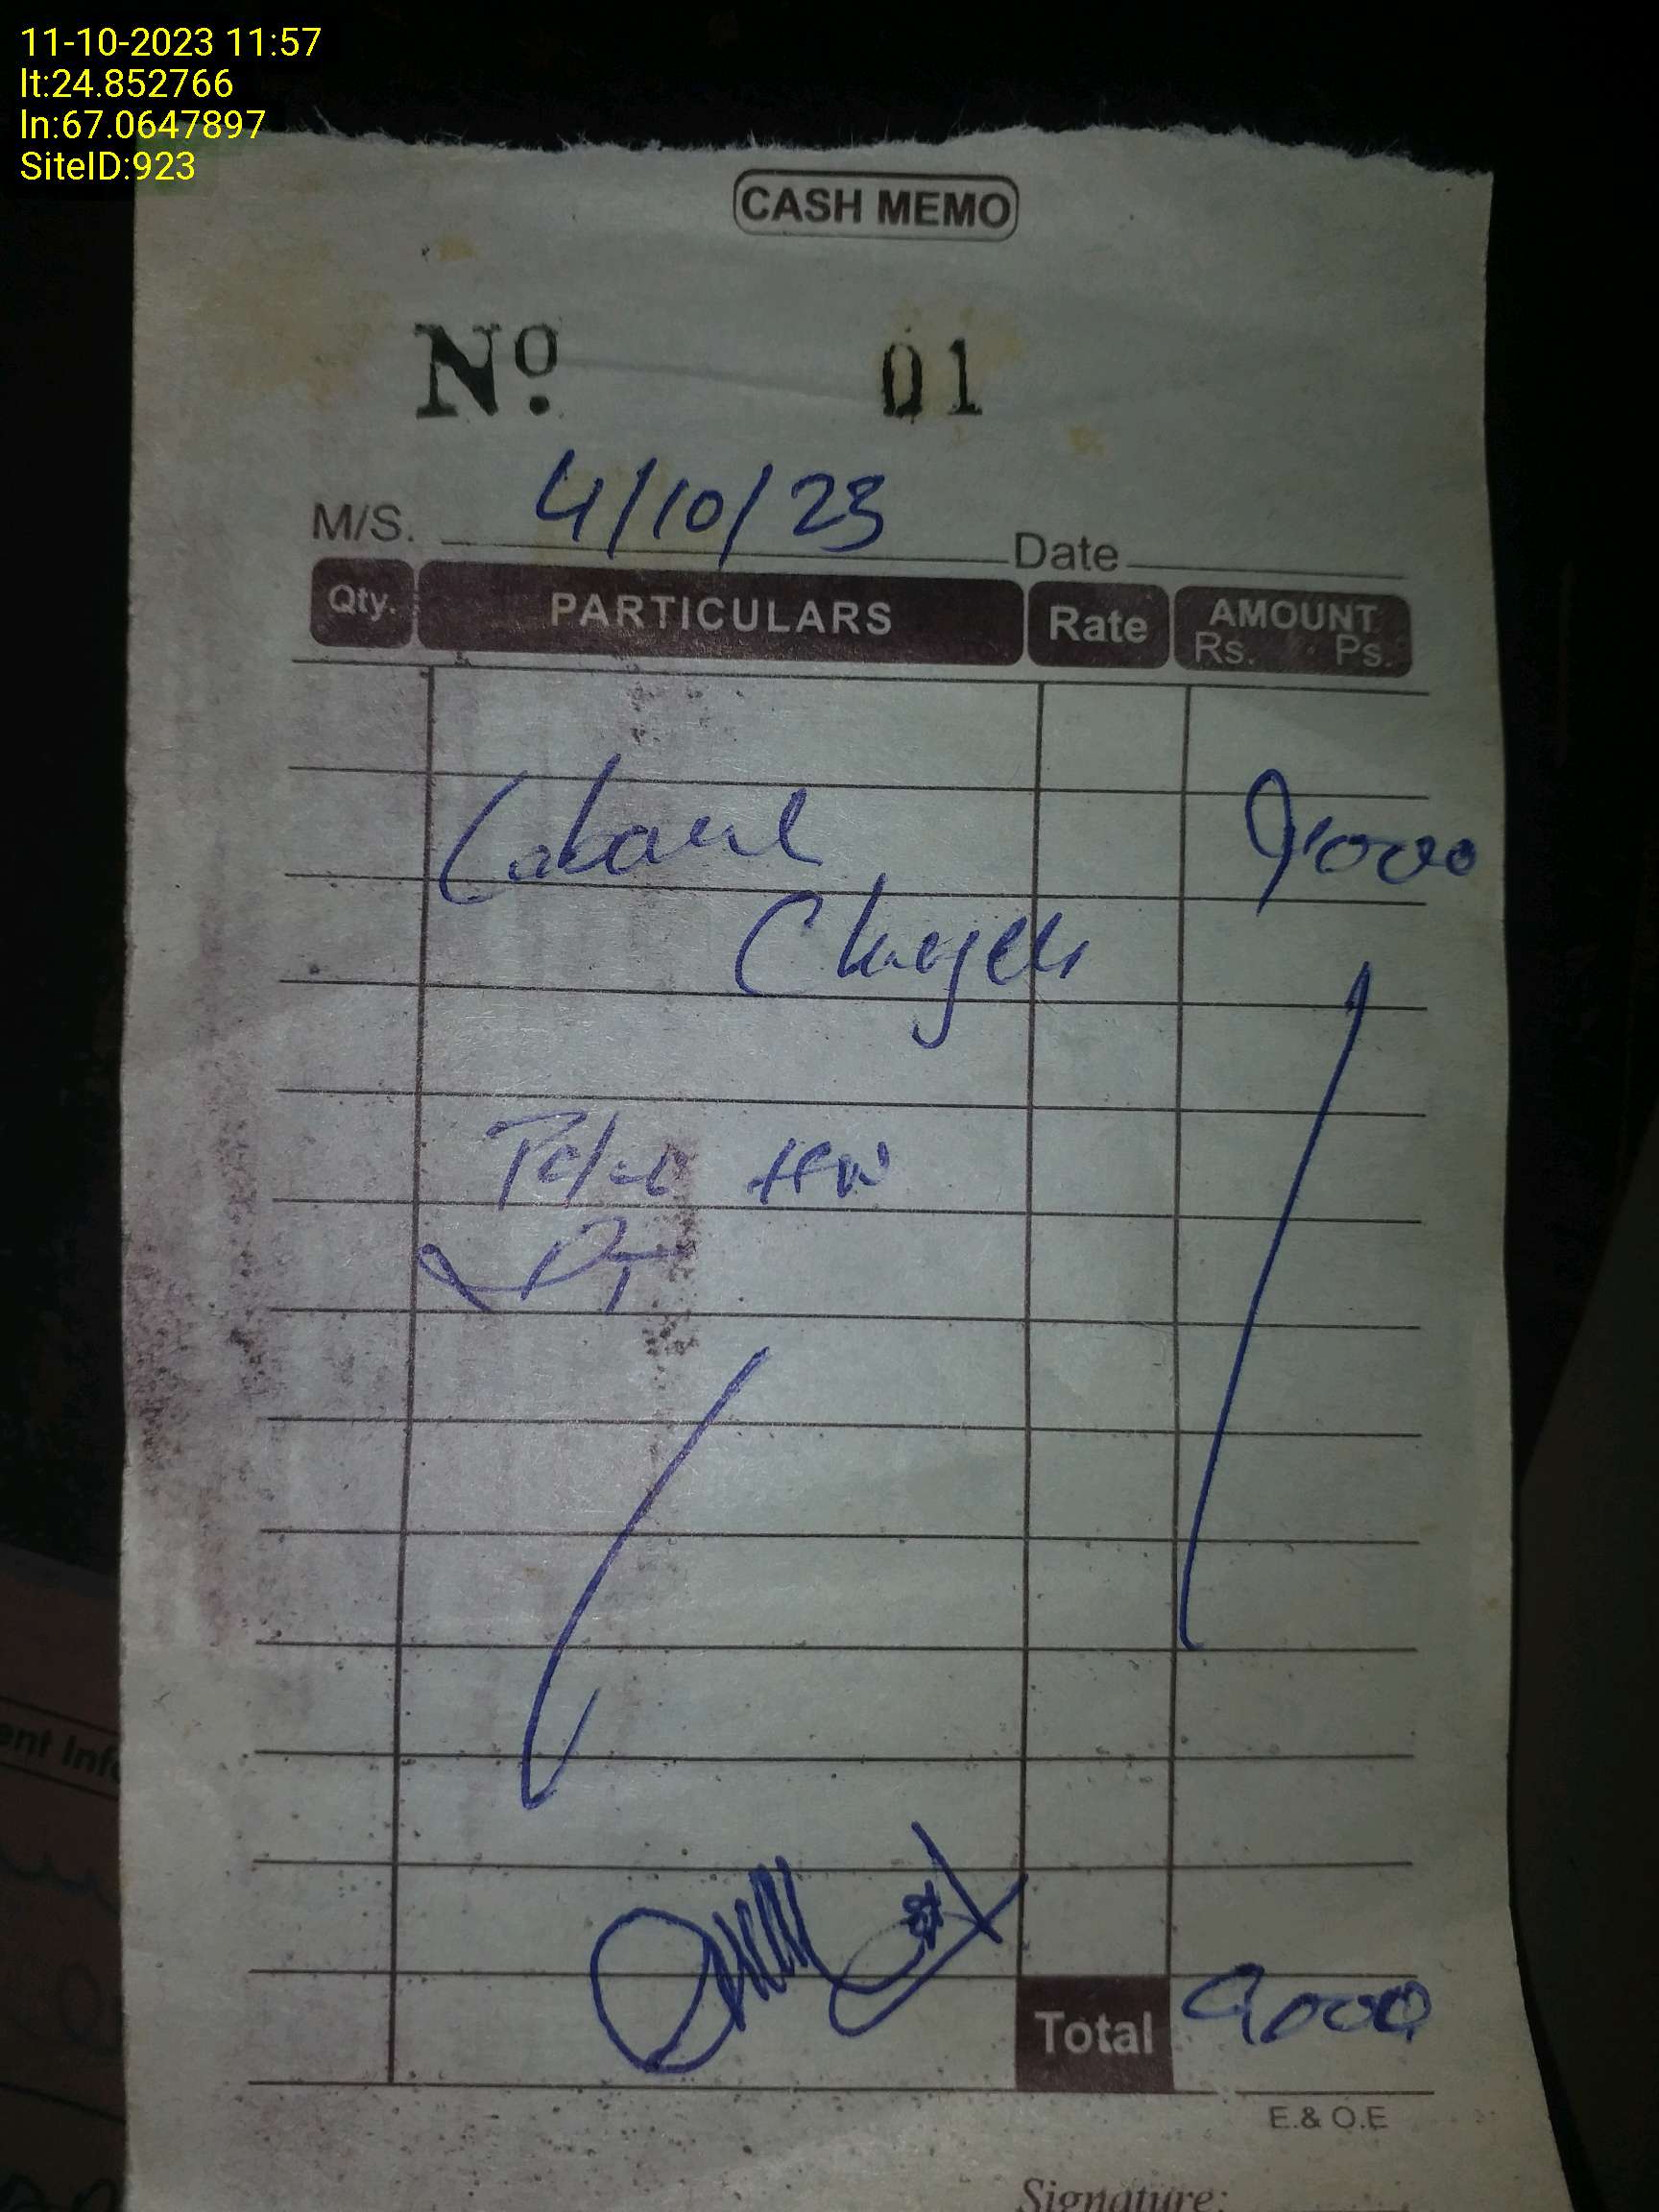 11-10-2023 11:57
lt:24.852766
ln:67.0647897
SiteID:923
CASH MEMO
No. 01
M/S. 4/10/23 Date
Qty. PARTICULARS Rate AMOUNT Rs. Ps.
9000
Charges
Total 9000
E.& O.E
Signature:
ent Inf